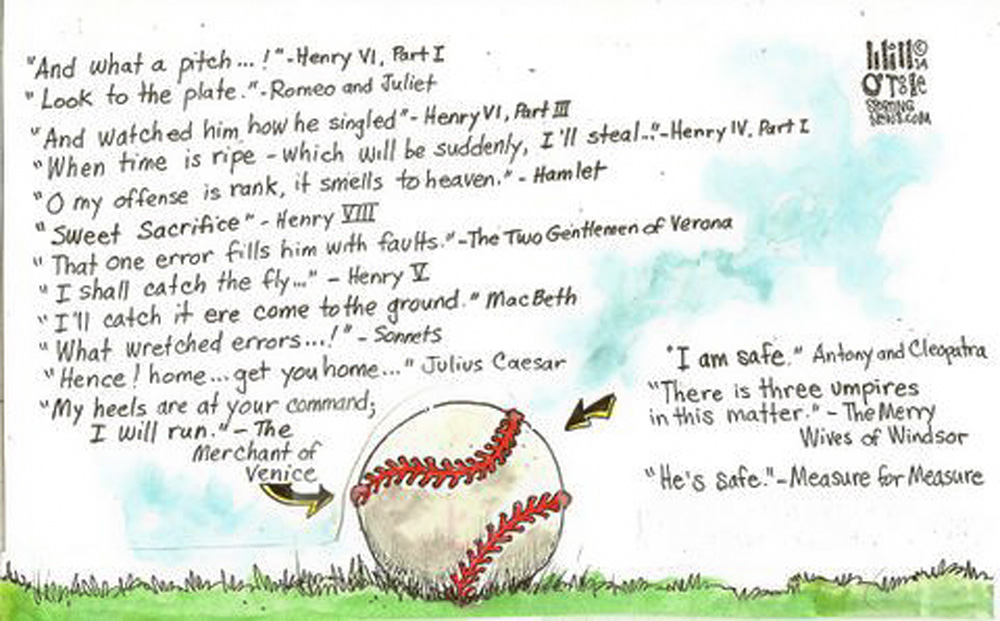 "And what a pitch...!"-Henry VI, Part I
"Look to the plate."-Romeo and Juliet
"And watched him how he singled"-Henry VI, Part III
"When time is ripe - which will be suddenly, I'll steal..."-Henry IV, Part I
"O my offense is rank, it smells to heaven." - Hamlet
"Sweet Sacrifice" - Henry VIII
"That one error fills him with faults."-The Two Gentlemen of Verona
"I shall catch the fly..." - Henry V
"I'll catch it ere come to the ground." MacBeth
"What wretched errors...!" - Sonnets
"Hence! home...get you home..." Julius Caesar
"My heels are at your command;
I will run." - The
Merchant of
Venice
"I am safe." Antony and Cleopatra
"There is three umpires
in this matter." - The Merry
Wives of Windsor
"He's safe."-Measure for Measure
Will©
O'Toole
SPORTING
NEWS.COM